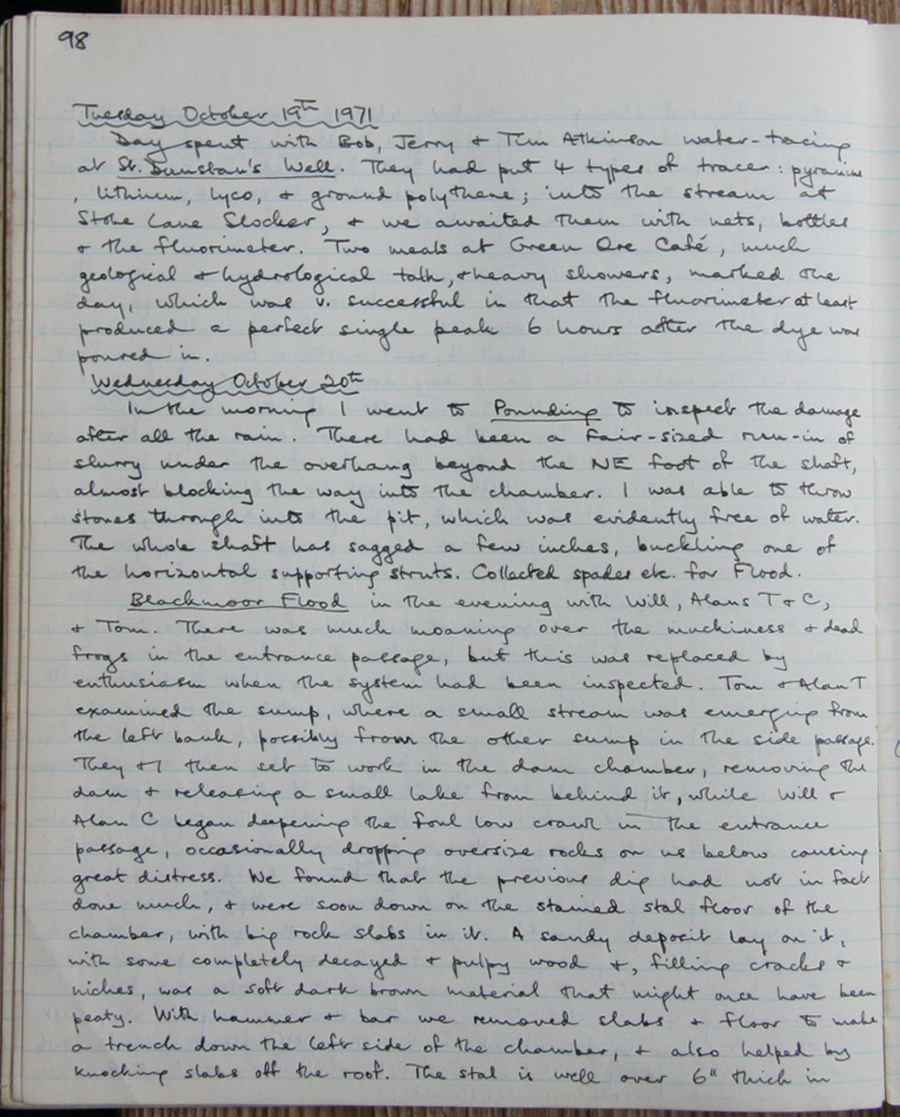 98
Tuesday October 19th 1971
Day spent with Bob, Jerry + Tim Atkinson water-tracing
at St. Dunstan's Well. They had put 4 types of tracer: pyranine
, lithium, lyco, + ground polythene; into the stream at
Stoke Lane Slocker, + we awaited them with nets, bottles
+ the fluorimeter. Two meals at Green Ore Café, much
geological + hydrological talk, + heavy showers, marked the
day, which was v. successful in that the fluorimeter at least
produced a perfect single peak 6 hours after the dye was
poured in.
Wednesday October 20th
In the morning I went to Pounding to inspect the damage
after all the rain. There had been a fair-sized run-in of
slurry under the overhang beyond the NE foot of the shaft,
almost blocking the way into the chamber. I was able to throw
stones through into the pit, which was evidently free of water.
The whole shaft has sagged a few inches, buckling one of
the horizontal supporting struts. Collected spades etc. for Flood.
Blackmoor Flood in the evening with Will, Alans T + C,
+ Tom. There was much moaning over the muckiness + dead
frogs in the entrance passage, but this was replaced by
enthusiasm when the system had been inspected. Tom + Alan T
examined the sump, where a small stream was emerging from
the left bank, possibly from the other sump in the side passage.
They + I then set to work in the dam chamber, removing the
dam + releasing a small lake from behind it, while Will +
Alan C began deepening the foul low crawl in the entrance
passage, occasionally dropping oversize rocks on us below causing
great distress. We found that the previous dig had not in fact
done much, + were soon down on the stained stal floor of the
chamber, with big rock slabs in it. A sandy deposit lay on it,
with some completely decayed + pulpy wood +, filling cracks +
niches, was a soft dark brown material that might once have been
peaty. With hammer + bar we removed slabs + floor to make
a trench down the left side of the chamber, + also helped by
knocking slabs off the roof. The stal is well over 6" thick in